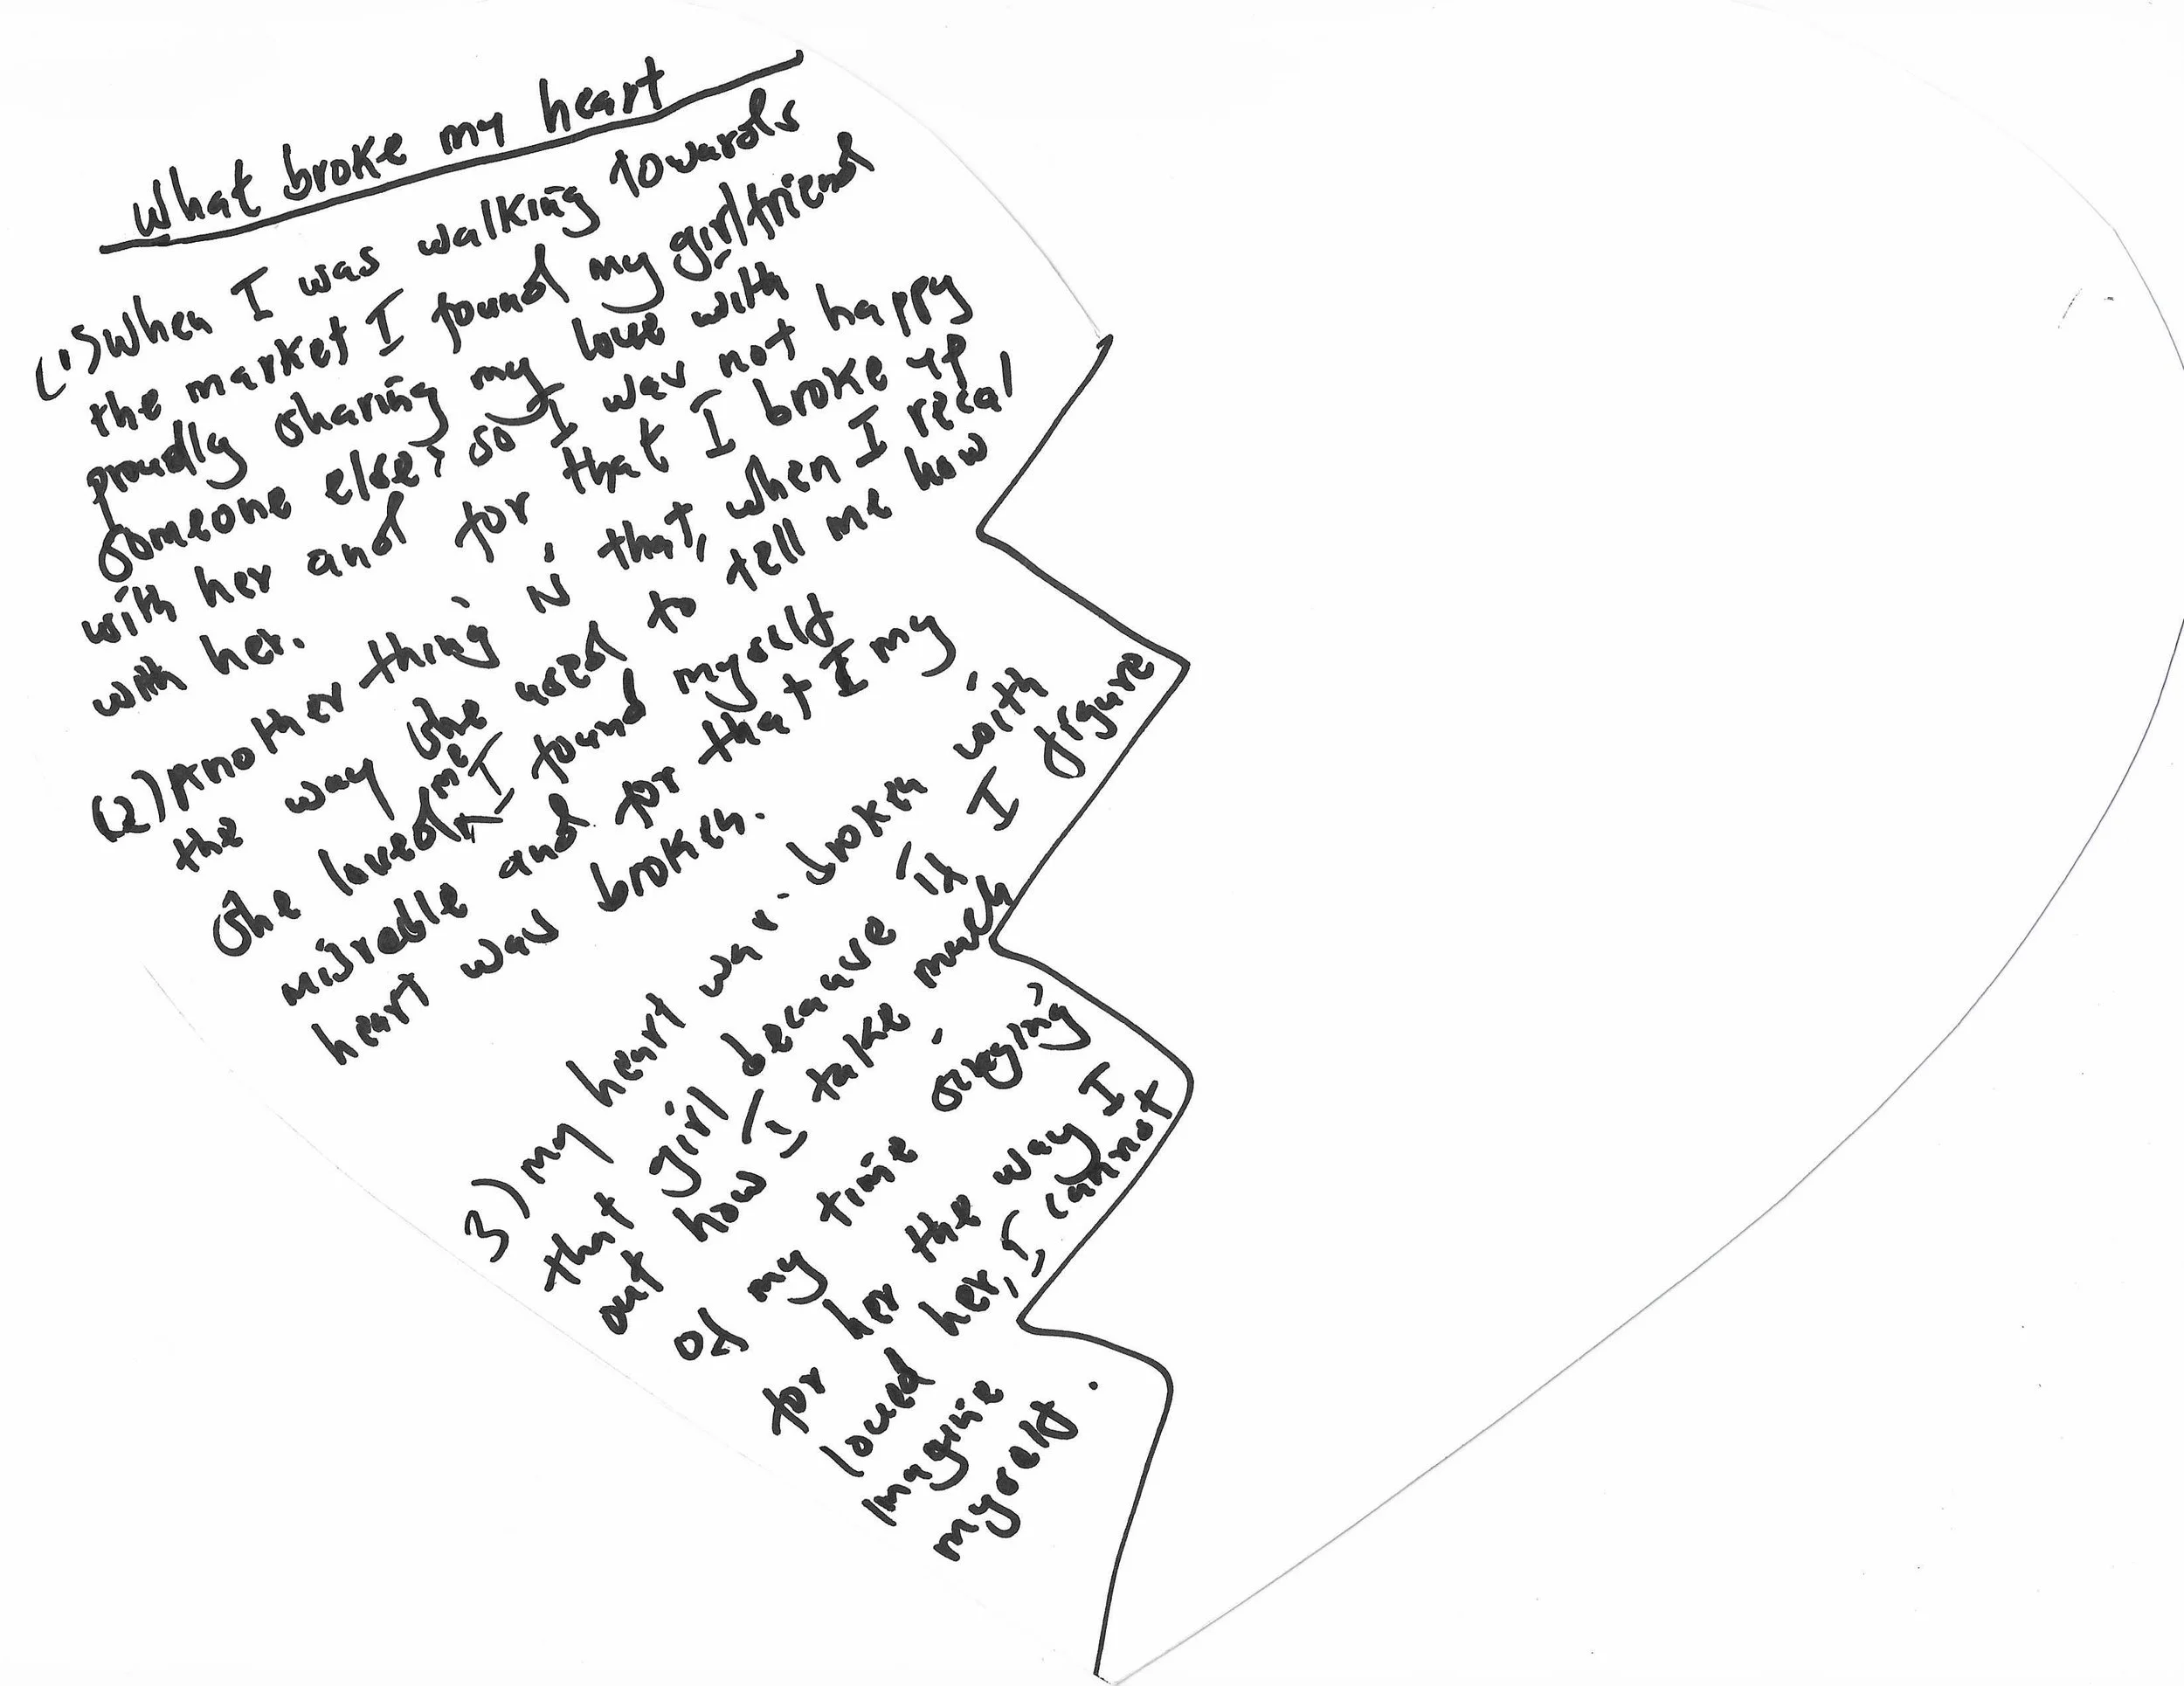 What broke my heart
(1) When I was walking towards
the market I found my girlfriend
proudly sharing my love with
someone else, so I was not happy
with her and for that I broke up
with her.
(2) Another thing is that, when I recal
the way she used to tell me how
She loved me I found myself
misreable and for that I my
heart was broken.
3) my heart was broken with
that girl because if I figure
out how I take much
of my time singing
for her the way I
loved her, I cannot
Imagine
myself.